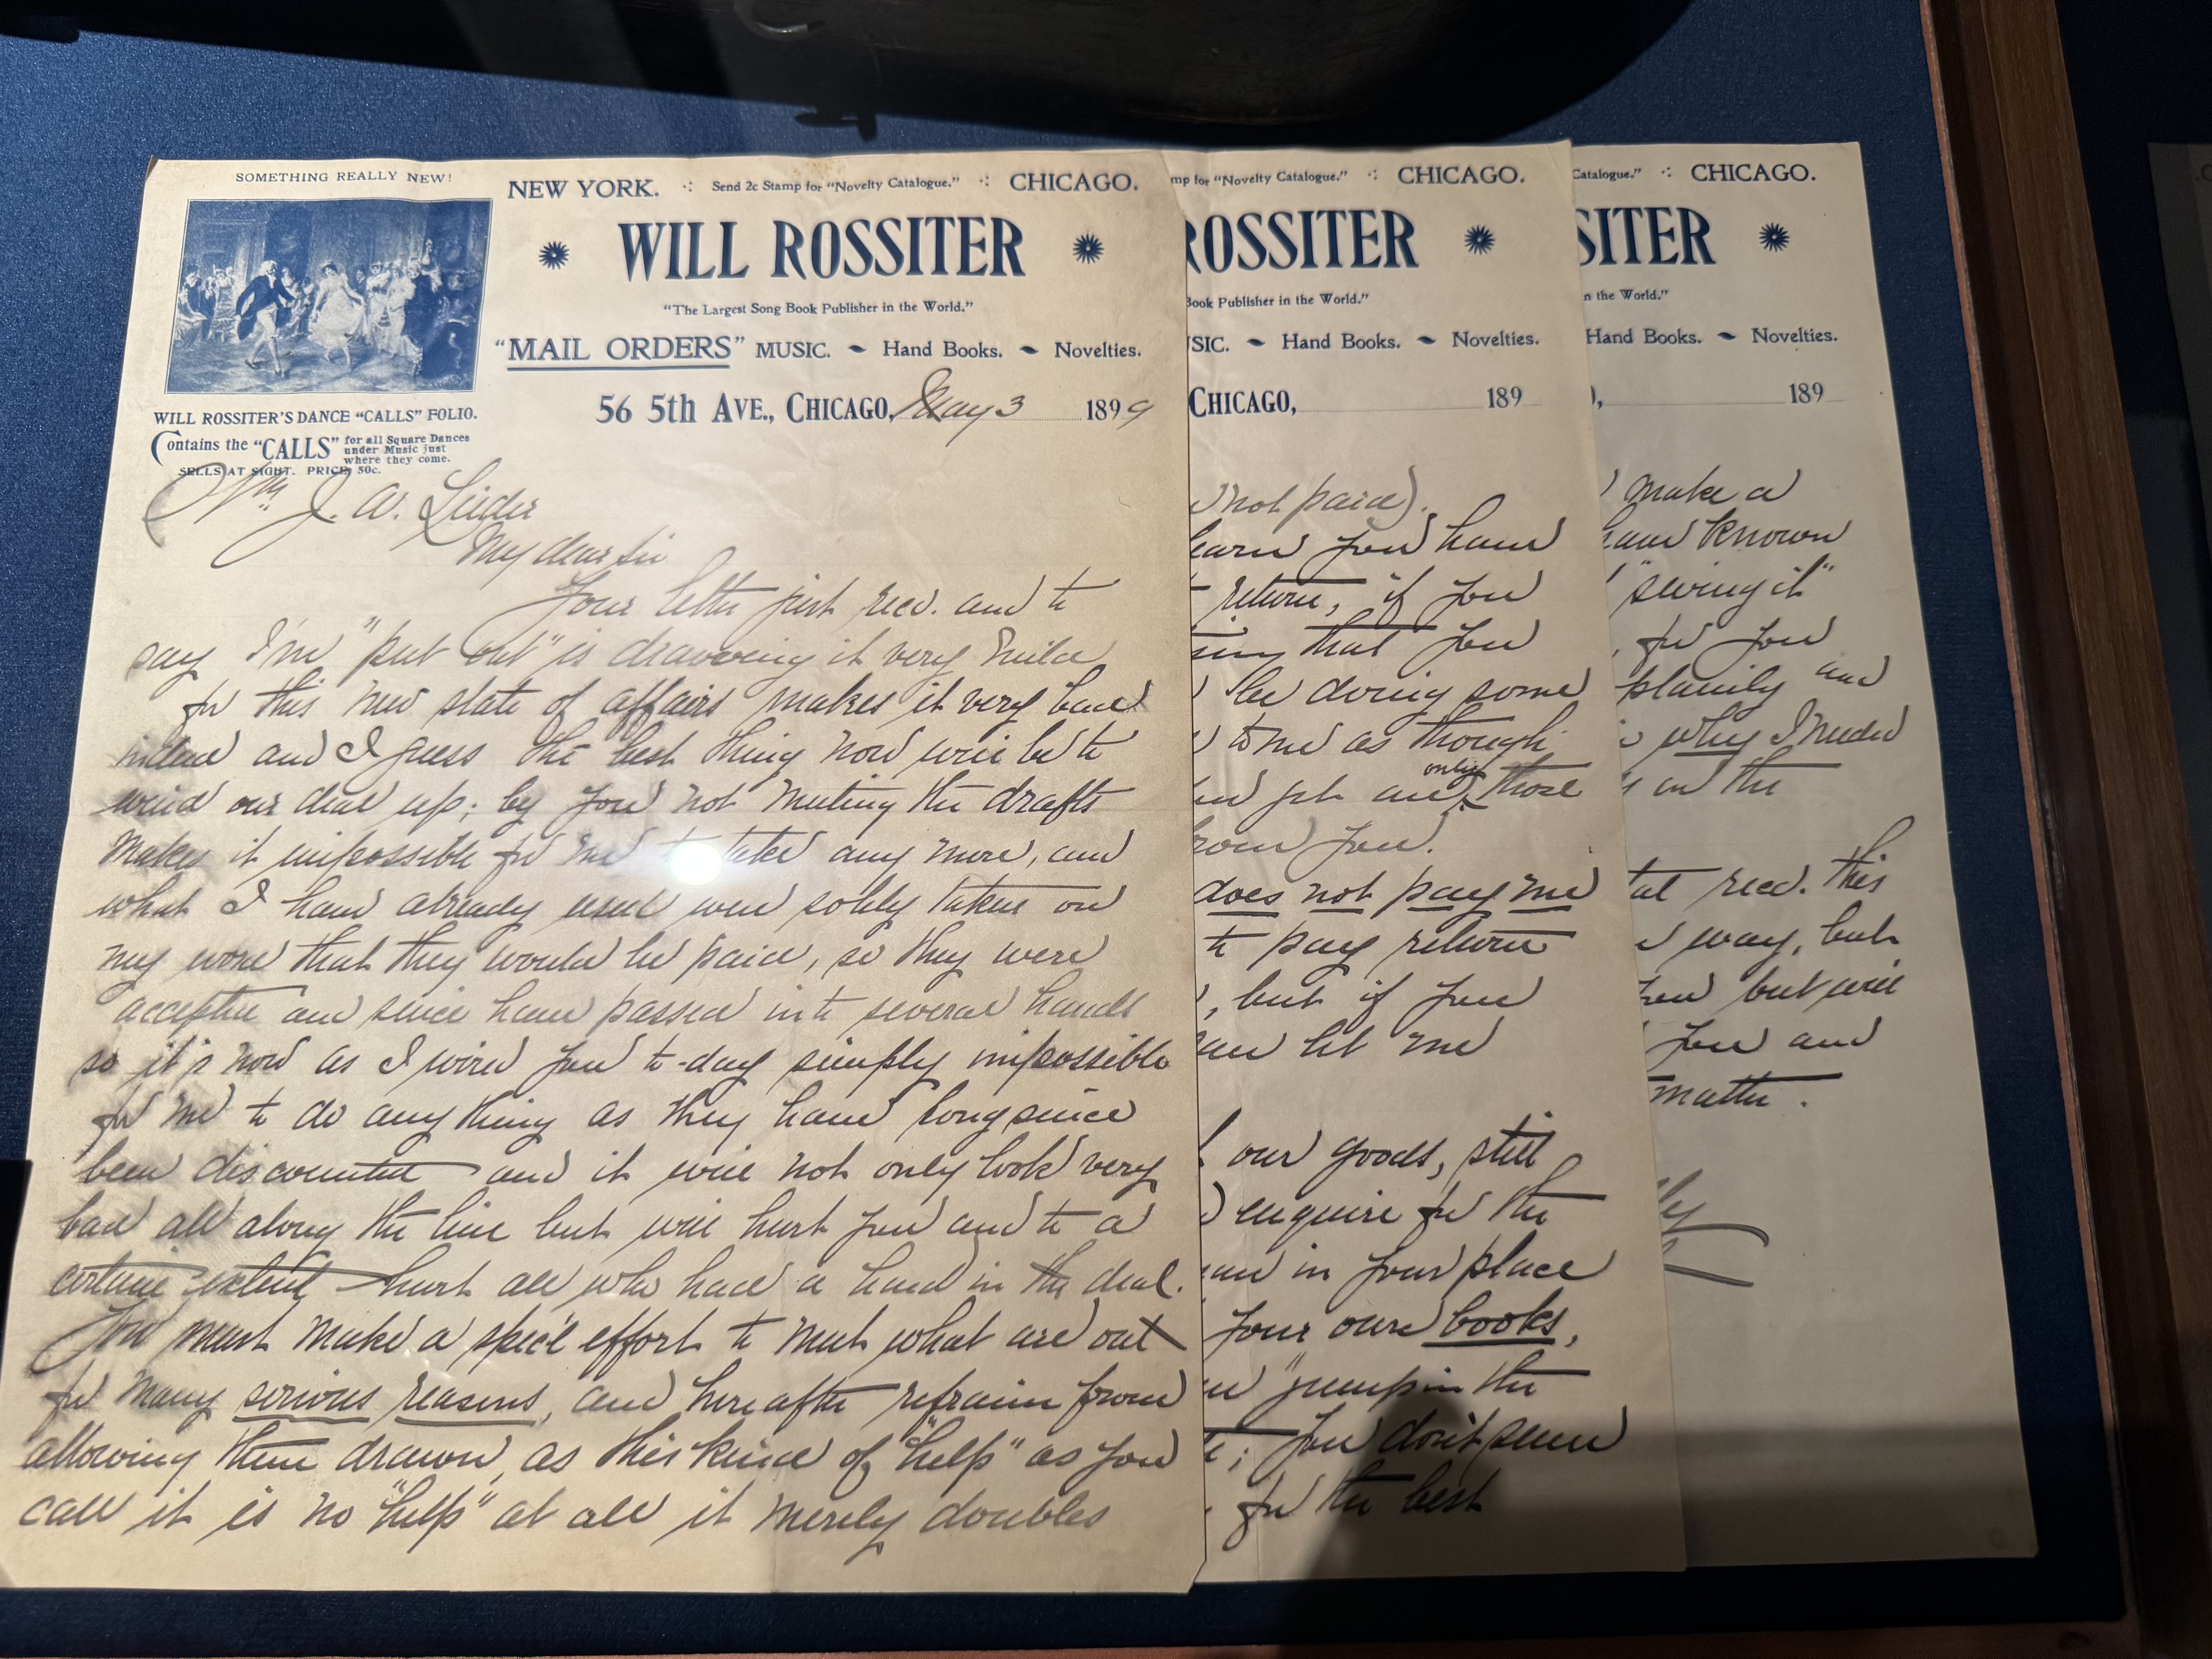 SOMETHING REALLY NEW!
NEW YORK. Send 2c Stamp for "Novelty Catalogue." CHICAGO.
WILL ROSSITER
"The Largest Song Book Publisher in the World."
"MAIL ORDERS" MUSIC. Hand Books. Novelties.
56 5th AVE., CHICAGO, May 3 1899
WILL ROSSITER'S DANCE "CALLS" FOLIO.
Contains the "CALLS" for all Square Dances
under Music just
where they come.
SELLS AT SIGHT. PRICE, 50c.
J. W.
My dear Sir
Your letter just recd. and to
say I'm "put out" is drawing it very mild
for this new state of affairs makes it very bad
indeed and I guess the best thing now will be to
wind our deal up; by you not meeting the drafts
makes it impossible for me to take any more, and
what I have already used were solely taken on
my word that they would be paid, so they were
accepted and since have passed into several hands
so it's now as I wired you to-day simply impossible
for me to do anything as they have long since
been discounted and it will not only look very
bad all along the line but will hurt you and to a
certain extent hurt all who had a hand in the deal.
You must make a spec'l effort to meet what are out
for many serious reasons, and hereafter refrain from
allowing them drawn, as this kind of "help" as you
call it is no "help" at all it merely doubles
mp for "Novelty Catalogue." CHICAGO.
ROSSITER
Book Publisher in the World."
SIC. Hand Books. Novelties.
CHICAGO, 189
not paid).
earn you have
return, if you
that you
be doing some
to me as though
only
get those
from you.
does not pay me
to pay return
, but if you
let me
our goods, still
enquire for the
in your place
your own books,
"jump in the
; you don't seem
for the best
Catalogue." CHICAGO.
SITER
n the World."
Hand Books. Novelties.
), 189
make a
have known
"swing it"
, for you
plainly and
why I needed
on the
recd. this
way, but
you but will
you and
matter.